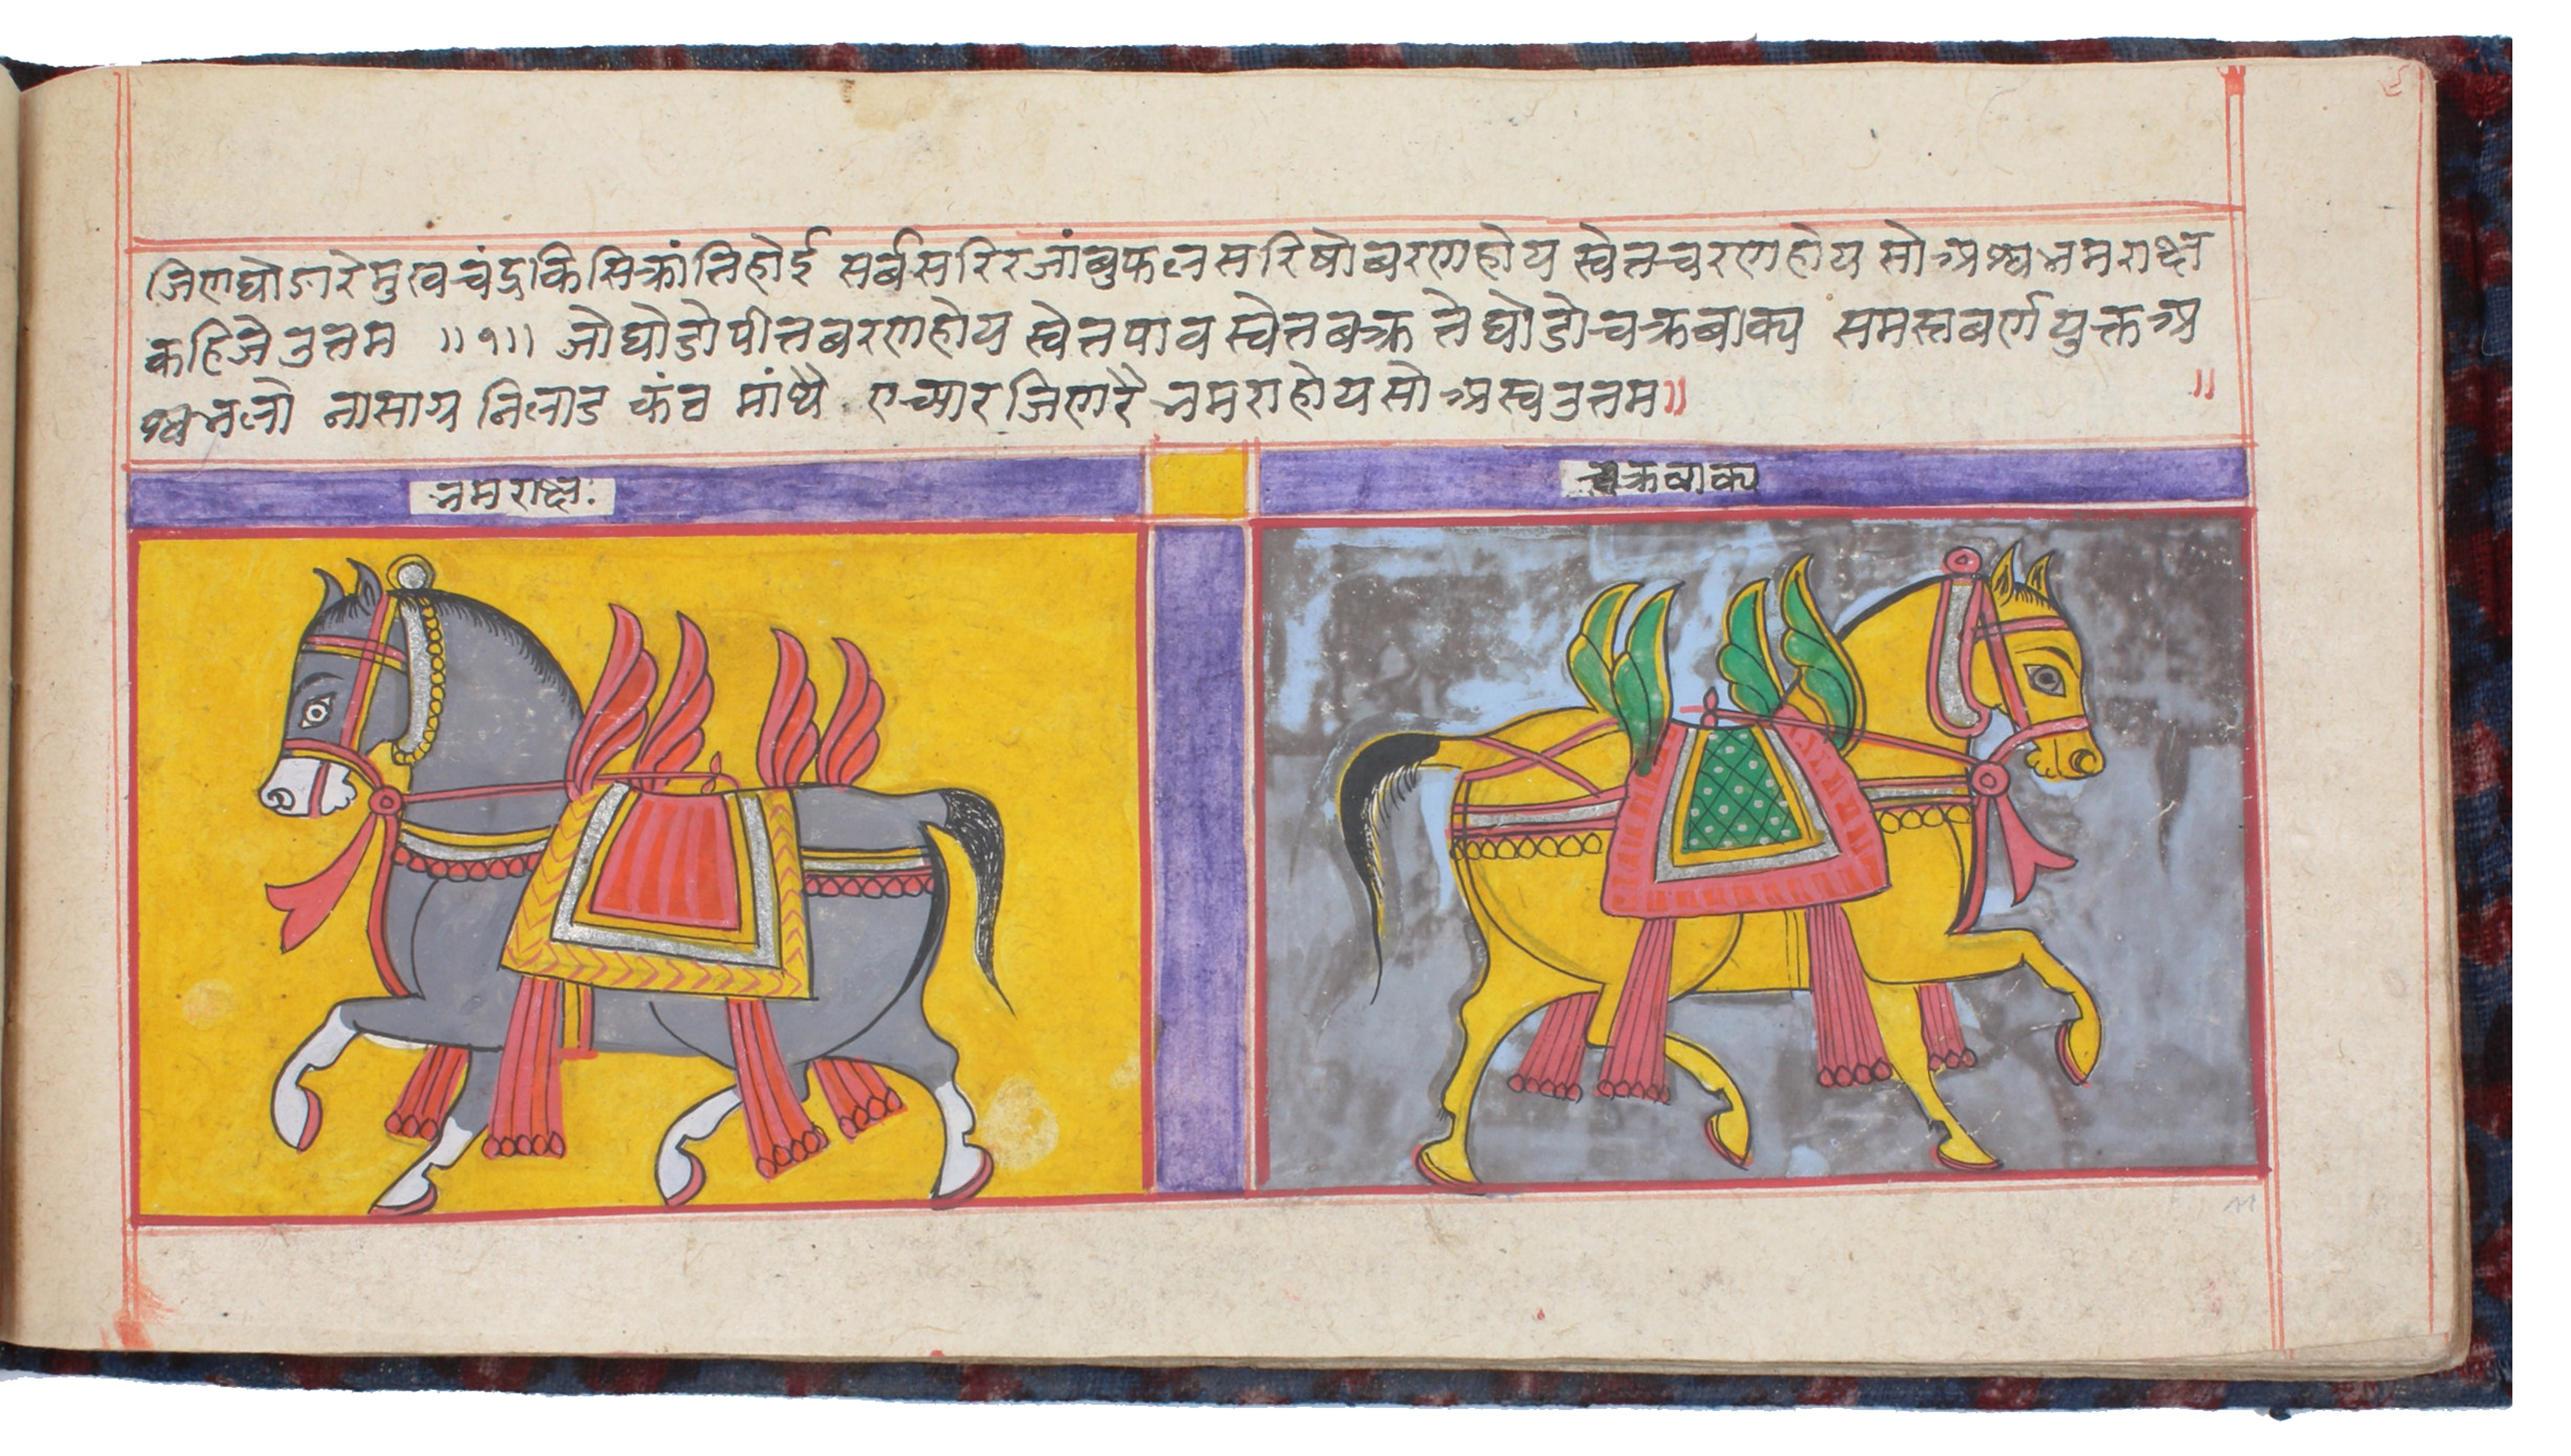 जिणघोडारेमुखचंद्रकिसिक्रांतिहोई सर्बसरिरजांबुफलसरिषोबरणहोय स्वेतचरणहोय सोअश्व
कहिजैउत्तम ॥१॥ जोघोडोपीतबरणहोय स्वेतपाव स्वेतबक्र तेघोडोचक्रबाक्य समस्तबर्णयुक्तअ
श्वभलो नासाग्र निलाड कंठ मांथै एच्यारजिणरै भमराहोयसोअस्वउत्तम॥ ॥
चक्रवाक्य